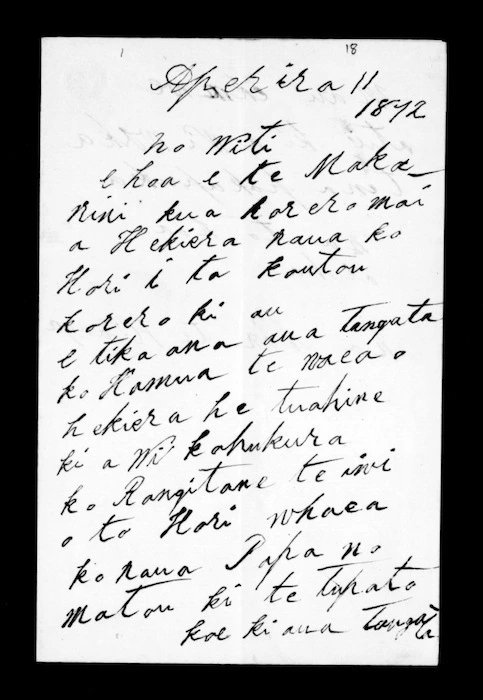 1 18
Aperira 11
1872
No Witi
e hoa e te Maka_
rini kua korero mai
a Hekiera raua ko
Hori i ta koutou
korero ki au
e tika ana aua tangata
ko Hamua te waea o
hekiera he tuahine
ki a Wi kahukura
ko Rangitane te iwi
o to Hori whaea
ko raua Papa no
matou ki te tupato
koe ki aua tangata